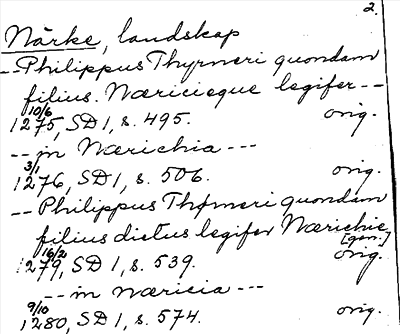 2.
Närke, landskap
-- Philippus Thyrneri quondam
filius. Næricieque legifer --
10/6
1275, SD 1, s. 495. orig.
-- in Nærichia ---
3/1
1276, SD 1, s. 506. orig.
-- Philippus Thyrneri quondam
filius dictus legifer Nærichie
[gen.]
16/2
1279, SD 1, s. 539. orig.
-- in Næricia ---
9/10
1280, SD 1, s. 574. orig.